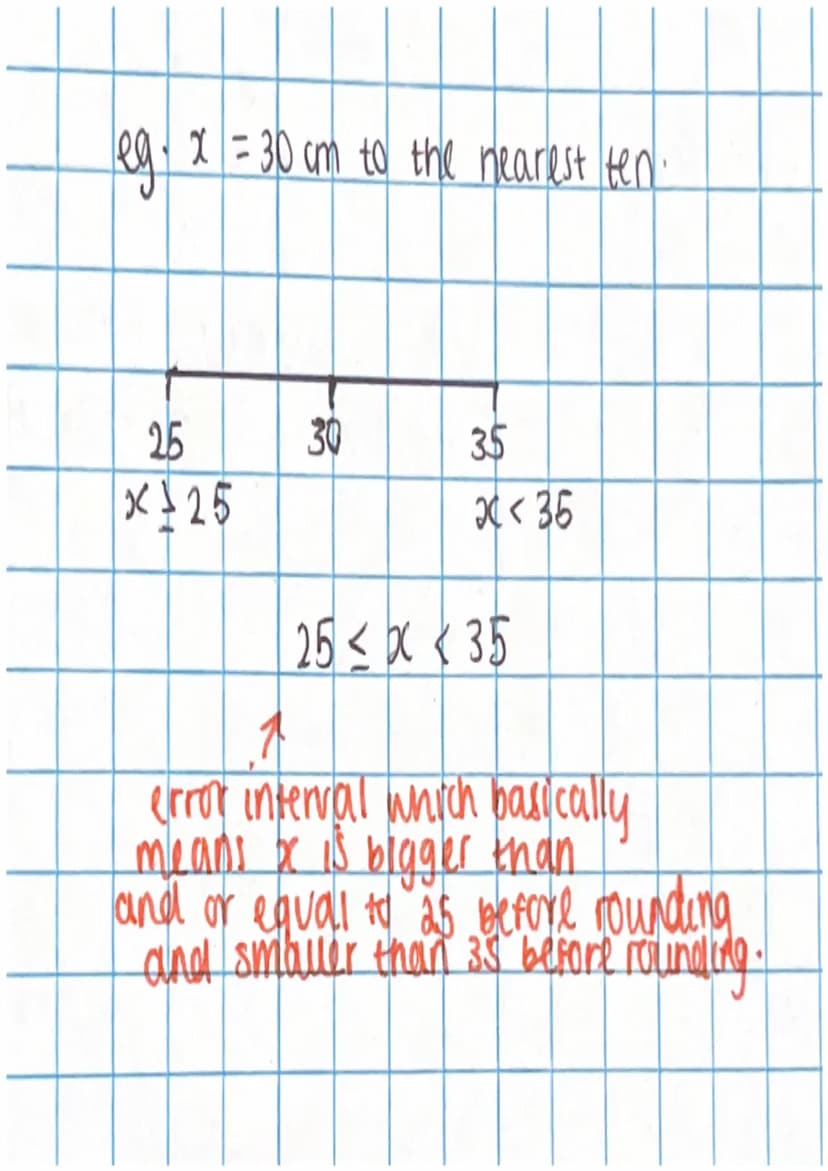 eg. x = 30 cm to the nearest ten.
25 30 35
x ≥ 25 x < 35
25 ≤ x < 35
error interval which basically
means x is bigger than
and or equal to 25 before rounding
and smaller than 35 before rounding.